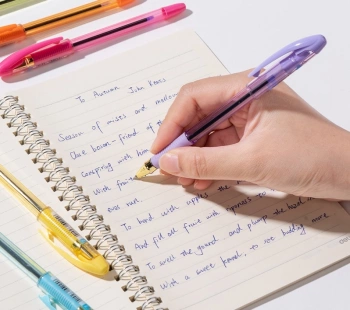 To Autumn John Keats
Season of mists and mellow
Close bosom-friend of th
Conspiring with him
With frui
eves run
To bend with apples the
And fill all fruit with ripeness to the
To swell the gourd, and plump the hazel
With a sweet kernel, to set budding more